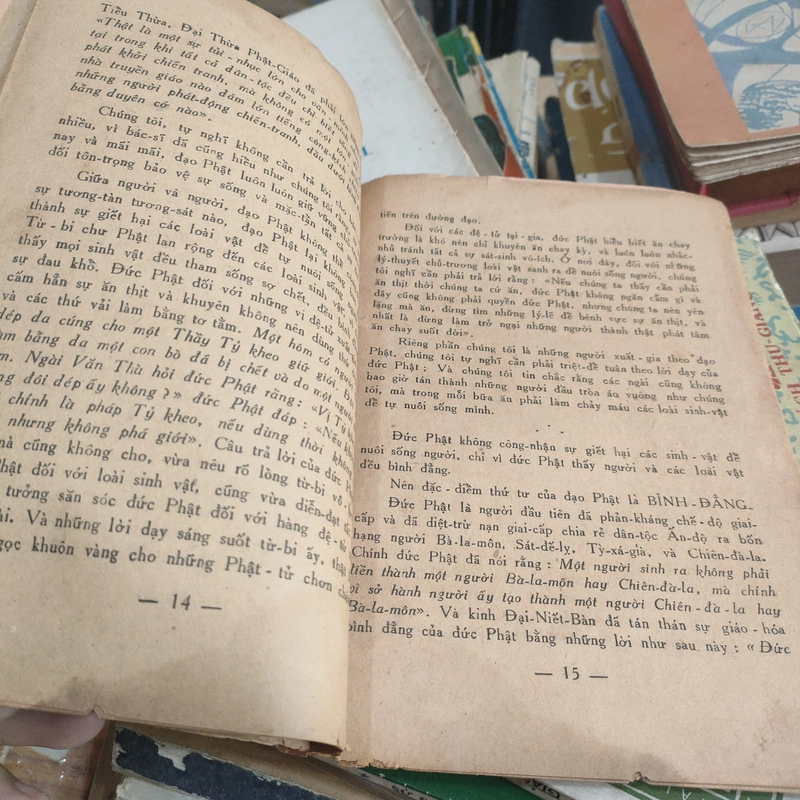 Tiểu Thừa, Đại Thừa Phật-Giáo đã phải lớn
«Thật là một sự tủi-nhục lớn cho văn-minh
tại trong khi tất cả dân-tộc đều chỉ biết
phát khởi chiến tranh, mà không có một
nhà truyền giáo nào dám lớn tiếng công-kích
những người phát-động chiến-tranh, dầu dưới
bằng duyên cớ nào».
Chúng tôi, tự nghĩ không cần trả lời cho
nhiều, vì bác-sĩ đã cũng hiểu như chúng tôi rằng,
nay và mãi mãi, đạo Phật luôn luôn giữ vững
đối tôn-trọng bảo vệ sự sống và mặc-tận tất cả
Giữa người và người, đạo Phật không thể
sự tương-tàn tương-sát nào, đạo Phật lại không
thành sự giết hại các loài vật để tự nuôi sống
Từ-bi chư Phật lan rộng đến các loài sinh vật
thấy mọi sinh vật đều tham sống sợ chết, đều bình
sự đau khổ. Đức Phật đối với những vị đệ-tử xuất
cấm hẳn sự ăn thịt và khuyên không nên dùng thứ
và các thứ vải làm bằng tơ tằm. Một hôm có người
dép da cúng cho một Thầy Tỷ kheo giữ giới. Đôi
làm bằng da một con bò đã bị chết và do một người
Ngài Văn Thù hỏi đức Phật rằng: «Vị Tỷ
đôi dép ấy không?» đức Phật đáp: «Nếu
chính là pháp Tỷ kheo, nếu dùng thời không
nhưng không phá giới». Câu trả lời của đức
mà cũng không cho, vừa nêu rõ lòng từ-bi vô
Phật đối với loài sinh vật, cũng vừa diễn-đạt
tưởng săn sóc đức Phật đối với hàng đệ-tử
Và những lời dạy sáng suốt từ-bi ấy, thật
ngọc khuôn vàng cho những Phật-tử chơn
— 14 —
tiến trên đường đạo.
Đối với các đệ-tử tại-gia, đức Phật hiểu biết ăn chay
trường là khó nên chỉ khuyên ăn chay kỳ, và luôn luôn nhắc-
nhủ tránh tất cả sự sát-sinh vô-ích. Ở nơi đây, đối với những
lý-thuyết chủ-trương loài vật sanh ra để nuôi sống người, chúng
tôi nghĩ cần phải trả lời rằng: «Nếu chúng ta thấy cần phải
ăn thịt thời chúng ta cứ ăn, đức Phật không ngăn cấm gì và
đây cũng không phải quyền đức Phật, nhưng chúng ta nên yên-
lặng mà ăn, đừng tìm những lý-lẽ để bênh vực sự ăn thịt, và
nhất là đừng làm trở ngại những người thành thật phát tâm
ăn chay suốt đời».
Riêng phần chúng tôi là những người xuất-gia theo đạo
Phật, chúng tôi tự nghĩ cần phải triệt-để tuân theo lời dạy của
đức Phật; Và chúng tôi tin chắc rằng các ngài cũng không
bao giờ tán thành những người đầu tròn áo vuông như chúng
tôi, mà trong mỗi bữa ăn phải làm chảy máu các loài sinh-vật
để tự nuôi sống mình.
. . .
Đức Phật không công-nhận sự giết hại các sinh-vật để
nuôi sống người, chỉ vì đức Phật thấy người và các loài vật
đều bình đẳng.
Nên đặc-điểm thứ tư của đạo Phật là BÌNH-ĐẲNG.
Đức Phật là người đầu tiên đã phản-kháng chế-độ giai-
cấp và đã diệt-trừ nạn giai-cấp chia rẽ dân-tộc Ấn-độ ra bốn
hạng người Bà-la-môn, Sát-đế-lỵ, Tỳ-xá-già, và Chiên-đà-la.
Chính đức Phật đã nói rằng: Một người sinh ra không phải
liền thành một người Bà-la-môn hay Chiên-đà-la, mà chính
vì sở hành người ấy tạo thành một người Chiên-đà-la hay
Bà-la-môn». Và kinh Đại-Niết-Bàn đã tán thán sự giáo-hóa
bình đẳng của đức Phật bằng những lời như sau này: « Đức
— 15 —